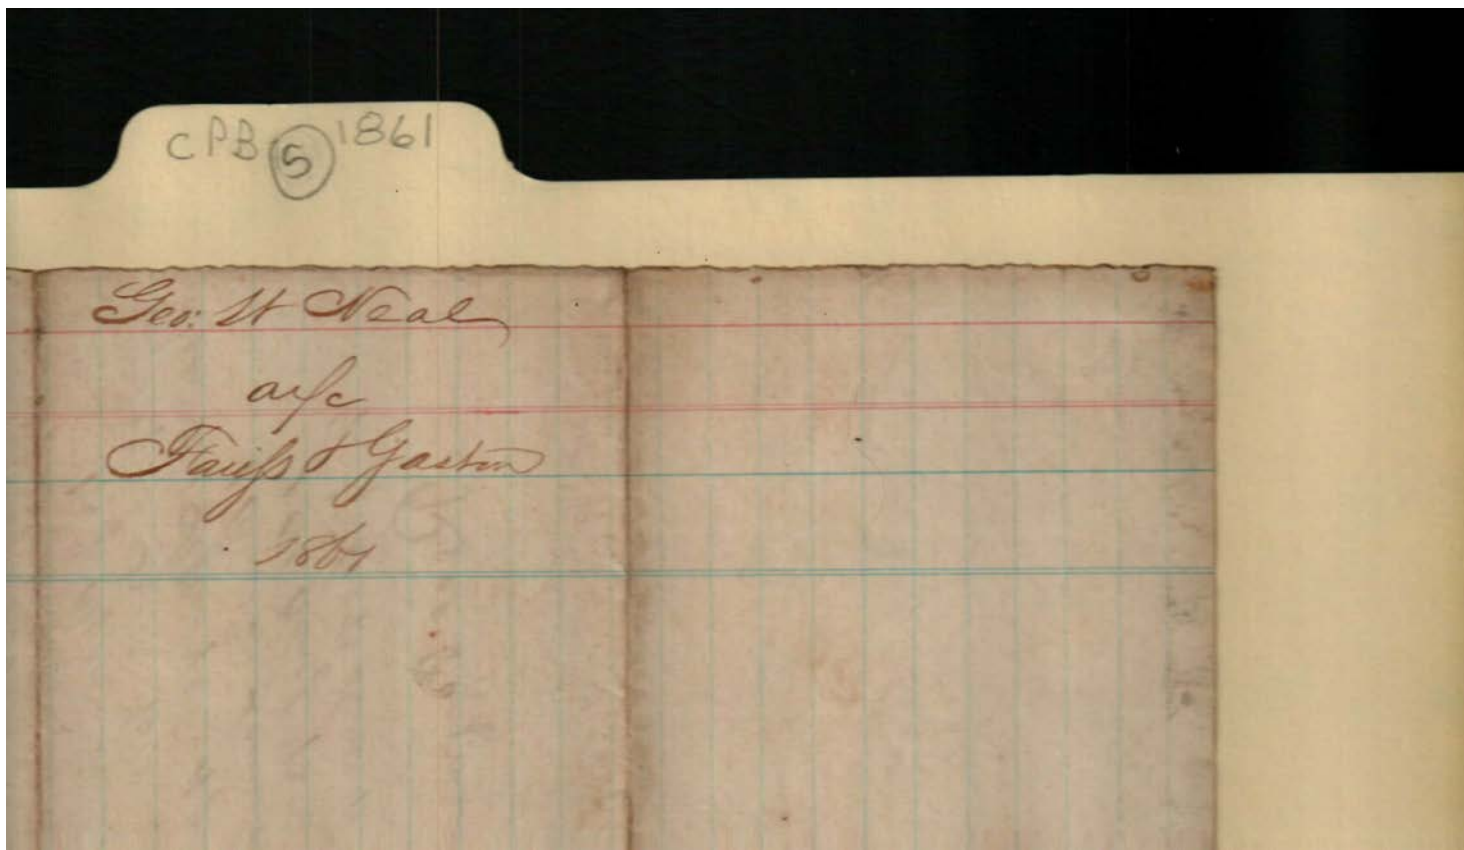 CPB 5 1861
Geo: W Neal
a/c
& Gaston
1861